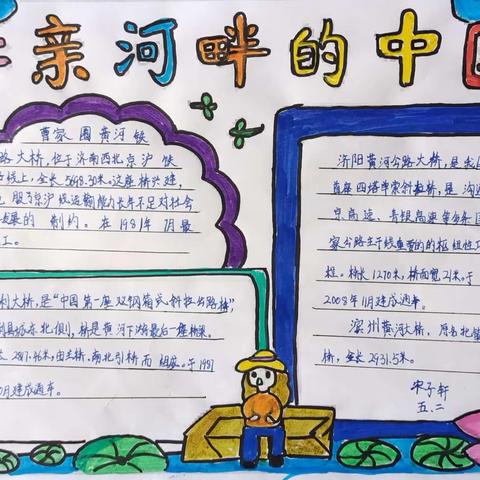 母亲河畔的中国
曹家圈黄河铁
路大桥,位于济南西北京沪铁
线上,全长5698.30米。这座桥兴建,
服了京沪线运输能力长年不足对社会
发展的制约。在1981年7月最
工。
利大桥,是"中国第一座双钢箱式斜拉公路桥",
利县城东北侧,桥是黄河下游最后一座桥梁。
2817.46米,由主桥、南北引桥而组成。于1987
0月建成通车。
济阳黄河公路大桥,是我国
首座四塔单索斜拉桥,是沟通
京高速、青银高速等多条国
家公路主干线重要的的枢纽性工
程。桥长1270米,桥面宽21米。于
2008年11月建成通车。
滨州黄河大桥,原名北镇
桥,全长2931.5米。
宋子轩
五.二